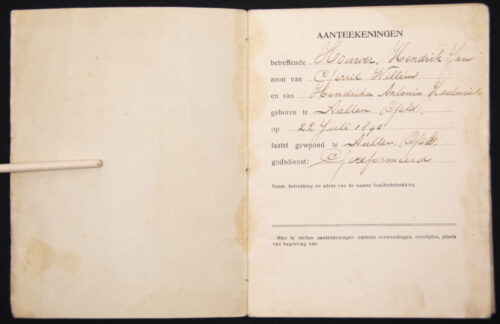 AANTEEKENINGEN
betreffende Houwer, Hendrik Jan
zoon van Gerrit Willem
en van Hendrika Antonia
geboren te Aalten (Geld.
op 22 Juli 1890
laatst gewoond te Aalten (Geld.
godsdienst: Gereformeerd
Naam, betrekking en adres van de naaste familiebetrekking
Hier te stellen aanteekeningen omtrent verwondingen, overlijden, plaats
van begraving enz.